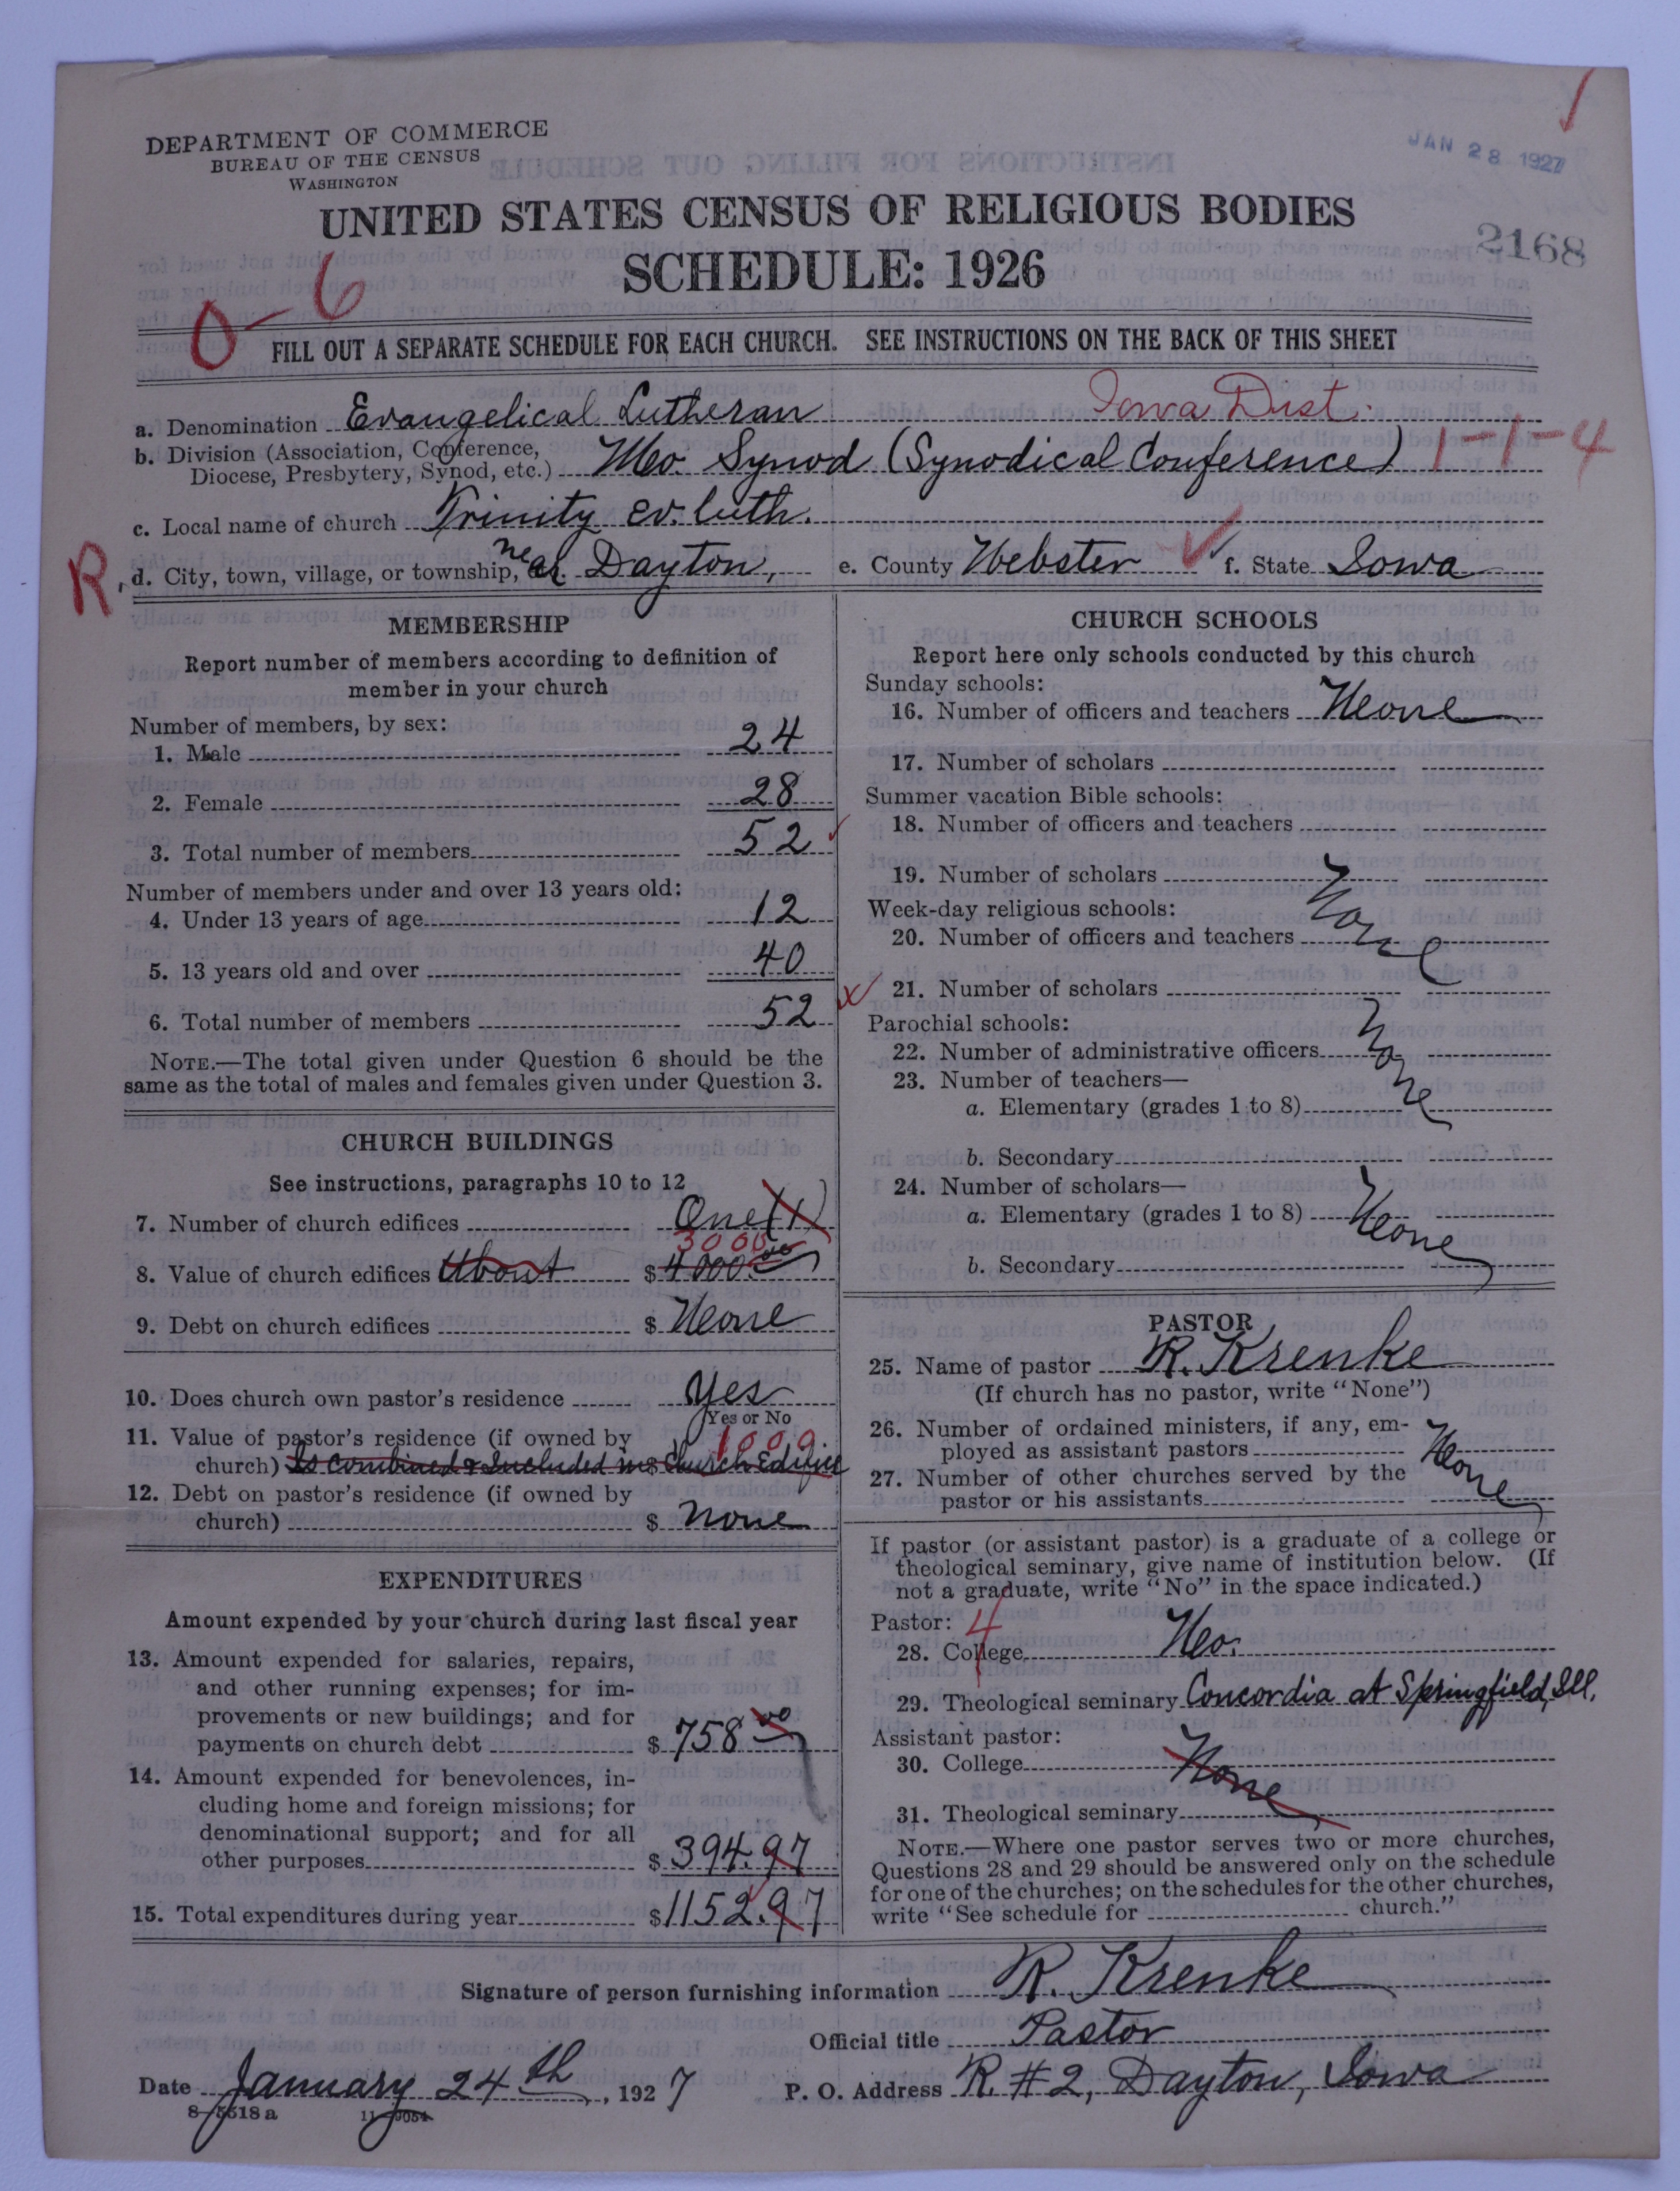 DEPARTMENT OF COMMERCE
BUREAU OF THE CENSUS
WASHINGTON
JAN 28 1927
UNITED STATES CENSUS OF RELIGIOUS BODIES
2168
SCHEDULE: 1926
0-6
FILL OUT A SEPARATE SCHEDULE FOR EACH CHURCH. SEE INSTRUCTIONS ON THE BACK OF THIS SHEET
a. Denomination Evangelical Lutheran Iowa Dist.
b. Division (Association, Conference,
Diocese, Presbytery, Synod, etc.) Mo. Synod (Synodical Conference) 1-1-4
c. Local name of church Trinity Ev. Luth.
R d. City, town, village, or township, near Dayton, e. County Webster f. State Iowa
MEMBERSHIP
Report number of members according to definition of
member in your church
Number of members, by sex:
1. Male 24
2. Female 28
3. Total number of members 52
Number of members under and over 13 years old:
4. Under 13 years of age 12
5. 13 years old and over 40
6. Total number of members 52
NOTE.—The total given under Question 6 should be the
same as the total of males and females given under Question 3.
CHURCH BUILDINGS
See instructions, paragraphs 10 to 12
7. Number of church edifices One (1)
3000
8. Value of church edifices About $ 4000.00
9. Debt on church edifices $ None
10. Does church own pastor's residence Yes
Yes or No
11. Value of pastor's residence (if owned by 1000
church) Is combined & Included in $ Church Edifice
12. Debt on pastor's residence (if owned by
church) $ None
EXPENDITURES
Amount expended by your church during last fiscal year
13. Amount expended for salaries, repairs,
and other running expenses; for im-
provements or new buildings; and for
payments on church debt $ 758 00
14. Amount expended for benevolences, in-
cluding home and foreign missions; for
denominational support; and for all
other purposes $ 394.97
15. Total expenditures during year $ 1152.97
CHURCH SCHOOLS
Report here only schools conducted by this church
Sunday schools:
16. Number of officers and teachers None
17. Number of scholars
Summer vacation Bible schools:
18. Number of officers and teachers
19. Number of scholars
Week-day religious schools: None
20. Number of officers and teachers
21. Number of scholars
Parochial schools:
22. Number of administrative officers None
23. Number of teachers—
a. Elementary (grades 1 to 8)
b. Secondary
24. Number of scholars—
a. Elementary (grades 1 to 8) None
b. Secondary
PASTOR
25. Name of pastor R. Krenke
(If church has no pastor, write "None")
26. Number of ordained ministers, if any, em-
ployed as assistant pastors None
27. Number of other churches served by the
pastor or his assistants
If pastor (or assistant pastor) is a graduate of a college or
theological seminary, give name of institution below. (If
not a graduate, write "No" in the space indicated.)
Pastor: 4
28. College No.
29. Theological seminary Concordia at Springfield, Ill.
Assistant pastor:
30. College None
31. Theological seminary
NOTE.—Where one pastor serves two or more churches,
Questions 28 and 29 should be answered only on the schedule
for one of the churches; on the schedules for the other churches,
write "See schedule for church."
Signature of person furnishing information R. Krenke
Official title Pastor
Date January 24th, 1927 P. O. Address R. #2, Dayton, Iowa
8-5518 a 11-9054